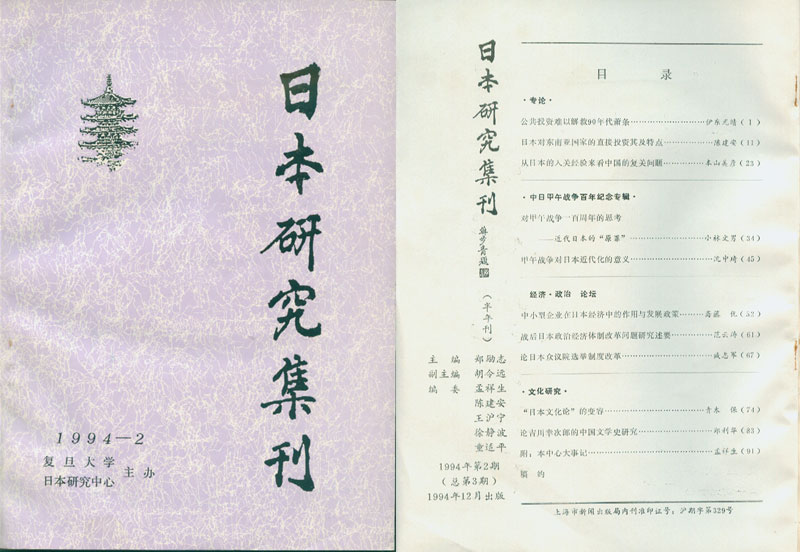 日本研究集刊
1994—2
复旦大学
日本研究中心
主办
日本研究集刊
苏步青题
(半年刊)
主编 郑励志
副主编 胡令远
编委 孟祥生
陈建安
王沪宁
徐静波
童适平
1994年第2期
(总第3期)
1994年12月出版
目 录
·专论·
公共投资难以解救90年代萧条……伊东光晴(1)
日本对东南亚国家的直接投资其及特点……陈建安(11)
从日本的入关经验来看中国的复关问题……本山美彦(23)
·中日甲午战争百年纪念专辑·
对甲午战争一百周年的思考
——近代日本的“原罪”……小林文男(34)
甲午战争对日本近代化的意义……沈中琦(45)
经济·政治 论坛
中小型企业在日本经济中的作用与发展政策……(52)
战后日本政治经济体制改革问题研究述要……范云涛(61)
论日本众议院选举制度改革……臧志军(67)
·文化研究·
“日本文化论”的变容……青木 保(74)
论吉川幸次郎的中国文学史研究……邵利华(83)
附:本中心大事记……孟祥生(91)
稿约
上海市新闻出版局内刊准印证号:沪期字第329号